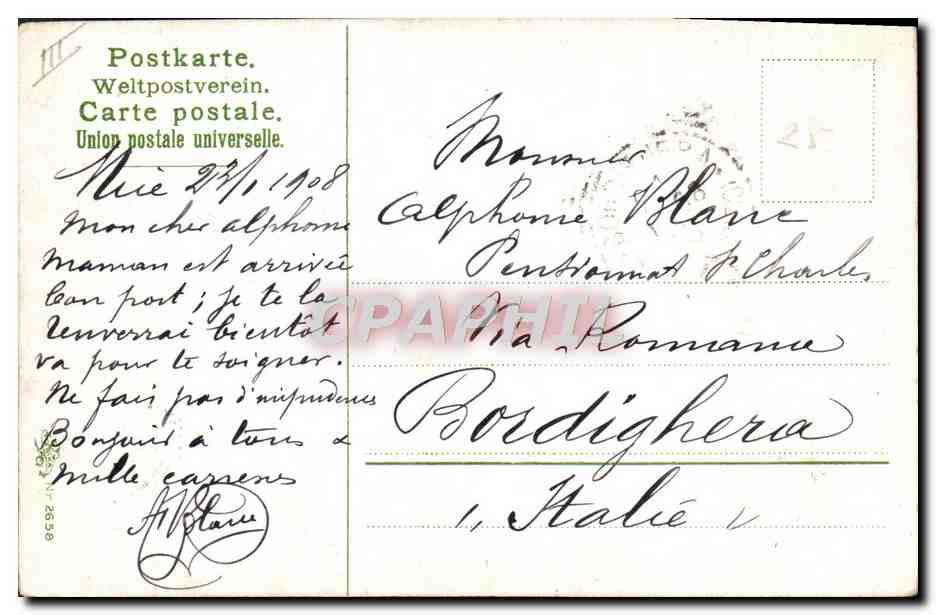 III
Postkarte.
Weltpostverein.
Carte postale.
Union postale universelle.
Nice 22/1 1908
Mon cher alphonse
maman est arrivée
bon port; je te la
renverrai bientot
va pour te soigner.
Ne fais pas d'imprudences
Bonjour à tous &
mille caresses
A Blanc
Nr 2658
25
Monsieur
Alphonse Blanc
Pensionnat St Charles
Via Romana
Bordighera
Italie
CPAPHIL